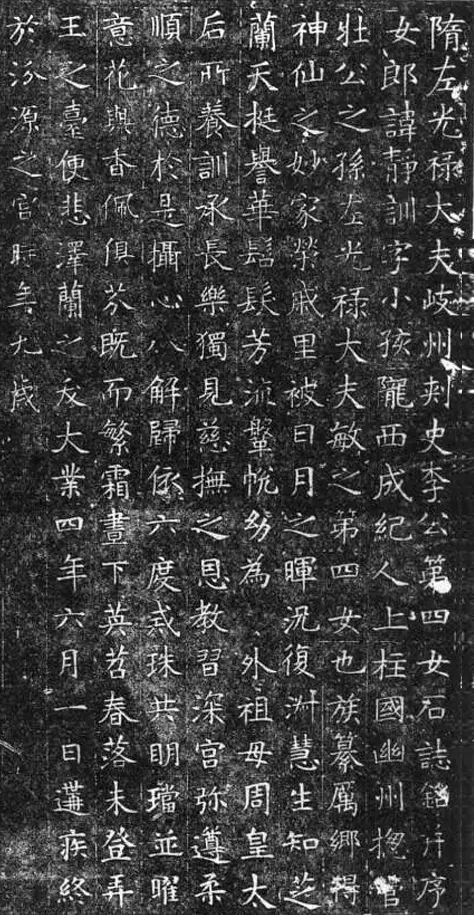 隋左光祿大夫岐州刺史李公第四女石誌銘并序
女郎諱靜訓字小孩隴西成紀人上柱國幽州揔管
壯公之孫左光祿大夫敏之第四女也族纂厲鄉得
神仙之妙家榮戚里被日月之暉況復淑慧生知芝
蘭天挺譽華髫髮芳流鞶帨幼為外祖母周皇太
后所養訓承長樂獨見慈撫之恩教習深宮弥遵柔
順之德於是攝心八解歸依六度戒珠共明璫並曜
意花與香佩俱芬既而繁霜晝下英苕春落未登弄
玉之臺便悲澤蘭之夭大業四年六月一日遘疾終
於汾源之宮時年九歲